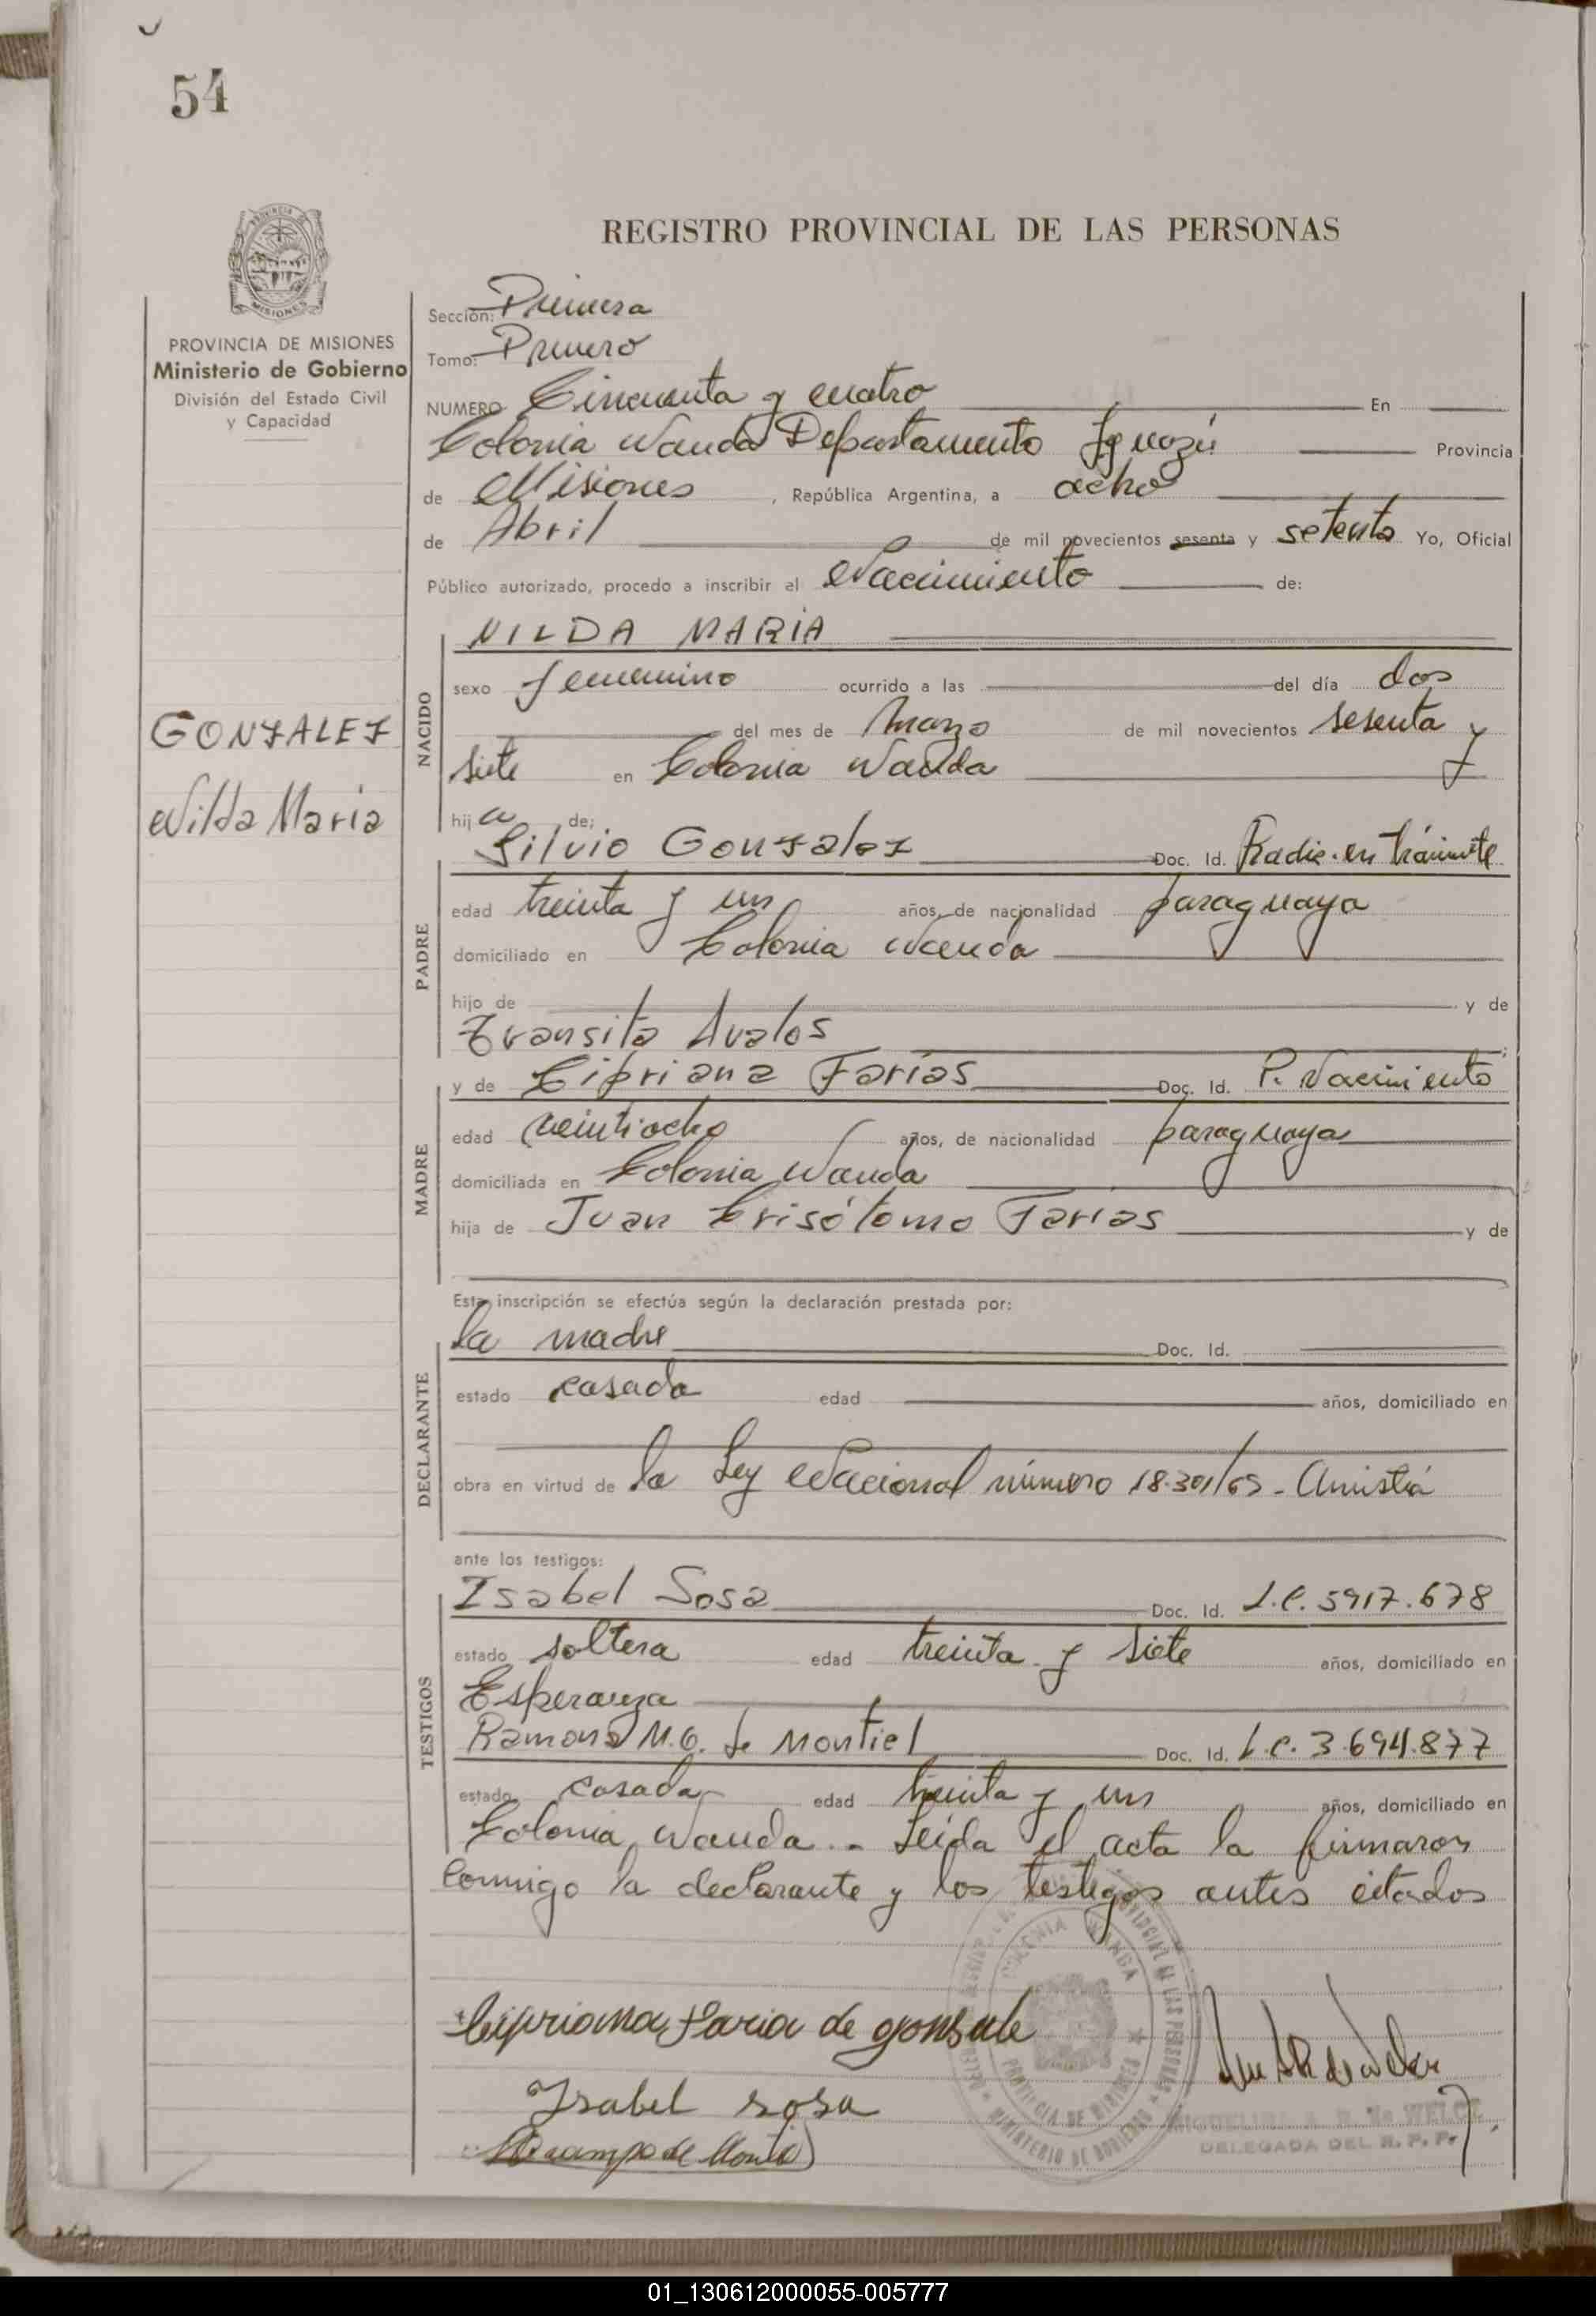 54
REGISTRO PROVINCIAL DE LAS PERSONAS
MISIONES
PROVINCIA DE MISIONES
Ministerio de Gobierno
División del Estado Civil
y Capacidad
GONZALEZ
Nilda María
Sección: Primera
Tomo: Primero
NUMERO Cincuenta y cuatro En
Colonia Wanda Departamento Iguazú Provincia
de Misiones, República Argentina, a ocho
de Abril de mil novecientos sesenta y setenta Yo, Oficial
Público autorizado, procedo a inscribir el Nacimiento de:
NACIDO
NILDA MARIA
sexo femenino ocurrido a las del día dos
del mes de Marzo de mil novecientos sesenta y
siete en Colonia Wanda
hija de:
PADRE
Silvio Gonzalez Doc. Id. Radic. en trámite
edad treinta y un años, de nacionalidad paraguaya
domiciliado en Colonia Wanda
hijo de y de
Transita Avalos
MADRE
y de Cipriana Farías Doc. Id. P. Nacimiento
edad veintiocho años, de nacionalidad paraguaya
domiciliada en Colonia Wanda
hija de Juan Crisótomo Farías y de
Esta inscripción se efectúa según la declaración prestada por:
DECLARANTE
la madre Doc. Id.
estado casada edad años, domiciliado en
obra en virtud de la Ley Nacional número 18.301/69 - Amistía
ante los testigos:
TESTIGOS
Isabel Sosa Doc. Id. L.C. 5917.678
estado soltera edad treinta y siete años, domiciliado en
Esperanza
Ramona M.O. de Montiel Doc. Id. L.C. 3.694.877
estado casada edad treinta y un años, domiciliado en
Colonia Wanda.- Leída el acta la firmaron
conmigo la declarante y los testigos antes citados
COLONIA WANDA
PROVINCIA DE MISIONES
MINISTERIO DE GOBIERNO
Cipriana Faria de gonsale
Isabel sosa
Ocampo de Montiel
DELEGADA DEL R. P. P.
01_130612000055-005777